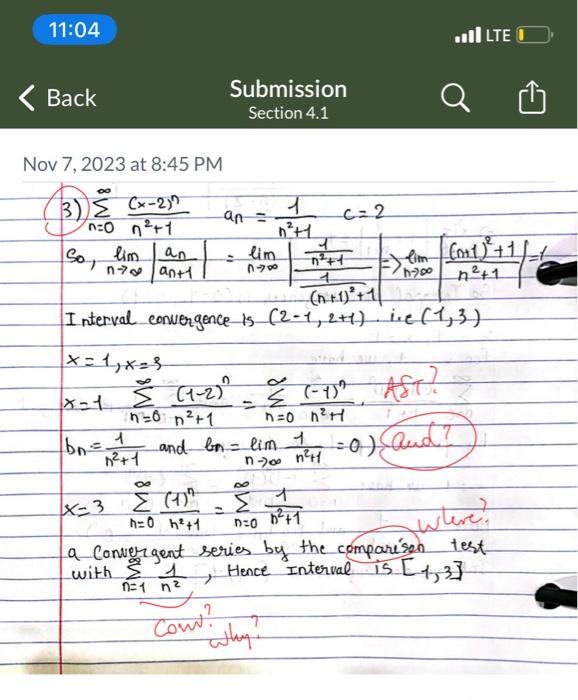 11:04
LTE
Back
Submission
Section 4.1
Nov 7, 2023 at 8:45 PM
3) ∞ Σ n=0 (x-2)^n / n²+1   an = 1/n²+1   c = 2
So, lim n→∞ |an / an+1| = lim n→∞ |(1/n²+1) / (1/(n+1)²+1)| => lim n→∞ |(n+1)²+1 / n²+1| = 1
Interval convergence is (2-1, 2+1). i.e (1,3)
x = 1, x = 3
x=1 ∞ Σ n=0 (1-2)^n / n²+1 = ∞ Σ n=0 (-1)^n / n²+1. AST?
bn = 1/n²+1 and bn = lim n→∞ 1/n²+1 = 0) and?
x=3 ∞ Σ n=0 (1)^n / n²+1 = ∞ Σ n=0 1/n²+1
where?
a convergent series by the comparison test
with ∞ Σ n=1 1/n², Hence Interval is [1,3]
Conv?
Why?